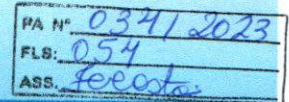 PA Nº 034/2023
FLS: 054
ASS.